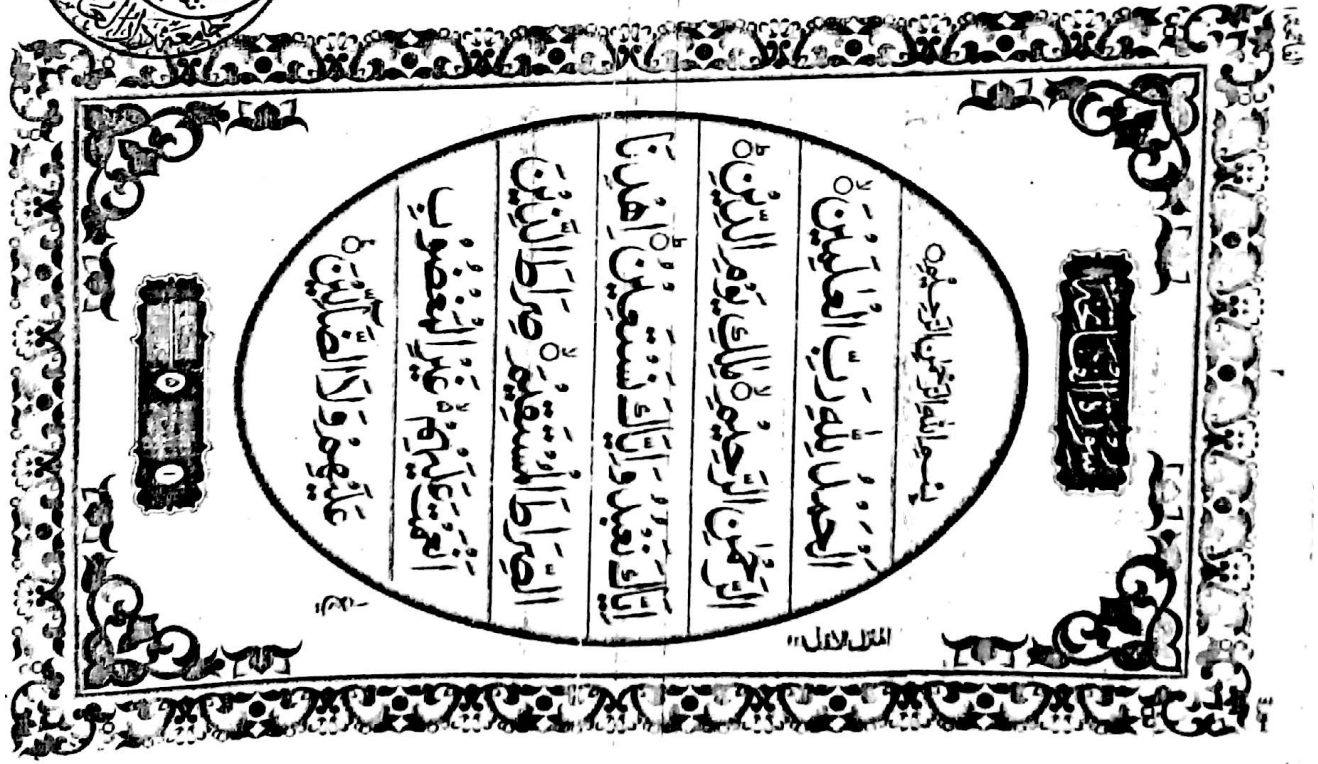 بِسْمِ اللهِ الرَّحْمٰنِ الرَّحِيْمِ ○
اَلْحَمْدُ لِلّٰهِ رَبِّ الْعٰلَمِيْنَ ○ لا
الرَّحْمٰنِ الرَّحِيْمِ ○ لا مٰلِكِ يَوْمِ الدِّيْنِ ○ ط
اِيَّاكَ نَعْبُدُ وَاِيَّاكَ نَسْتَعِيْنُ ○ ط اِهْدِنَا
الصِّرَاطَ الْمُسْتَقِيْمَ ○ لا صِرَاطَ الَّذِيْنَ
اَنْعَمْتَ عَلَيْهِمْ ○ لا غَيْرِ الْمَغْضُوْبِ
عَلَيْهِمْ وَلَا الضَّآلِّيْنَ ○
المنزل الاول